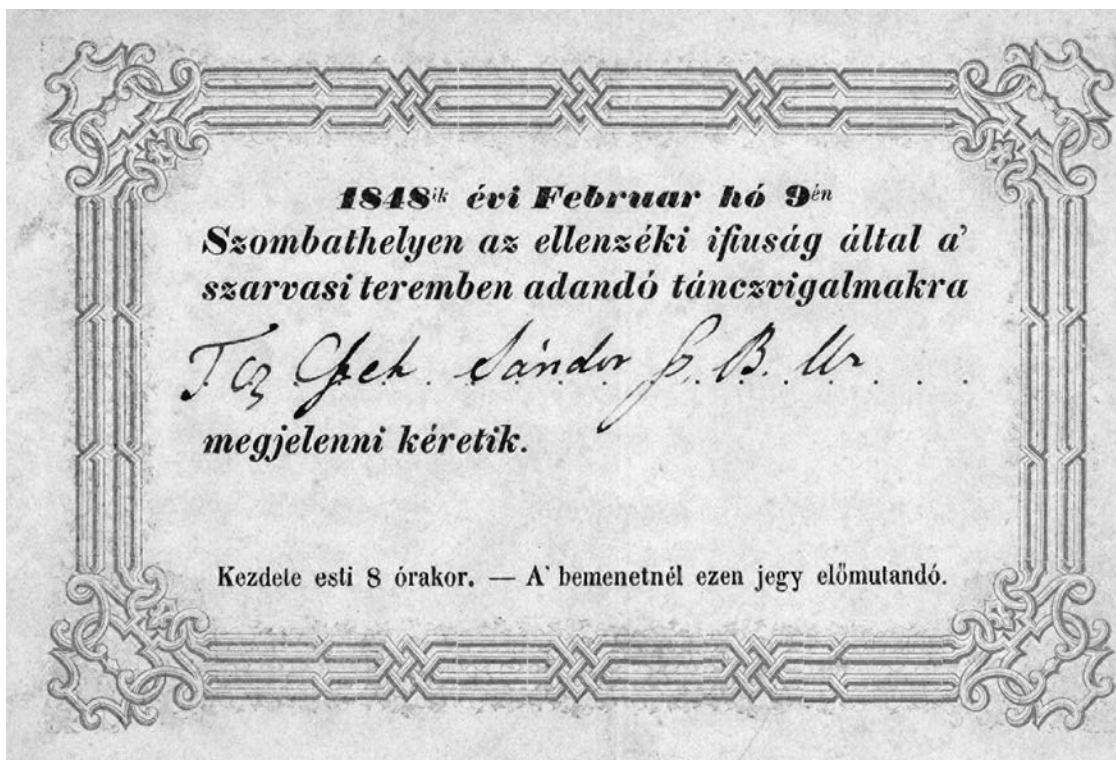 1848ik évi Februar hó 9én
Szombathelyen az ellenzéki ifiuság által a'
szarvasi teremben adandó tánczvigalmakra
Sándor B. Ur
megjelenni kéretik.
Kezdete esti 8 órakor. — A' bemenetnél ezen jegy előmutandó.